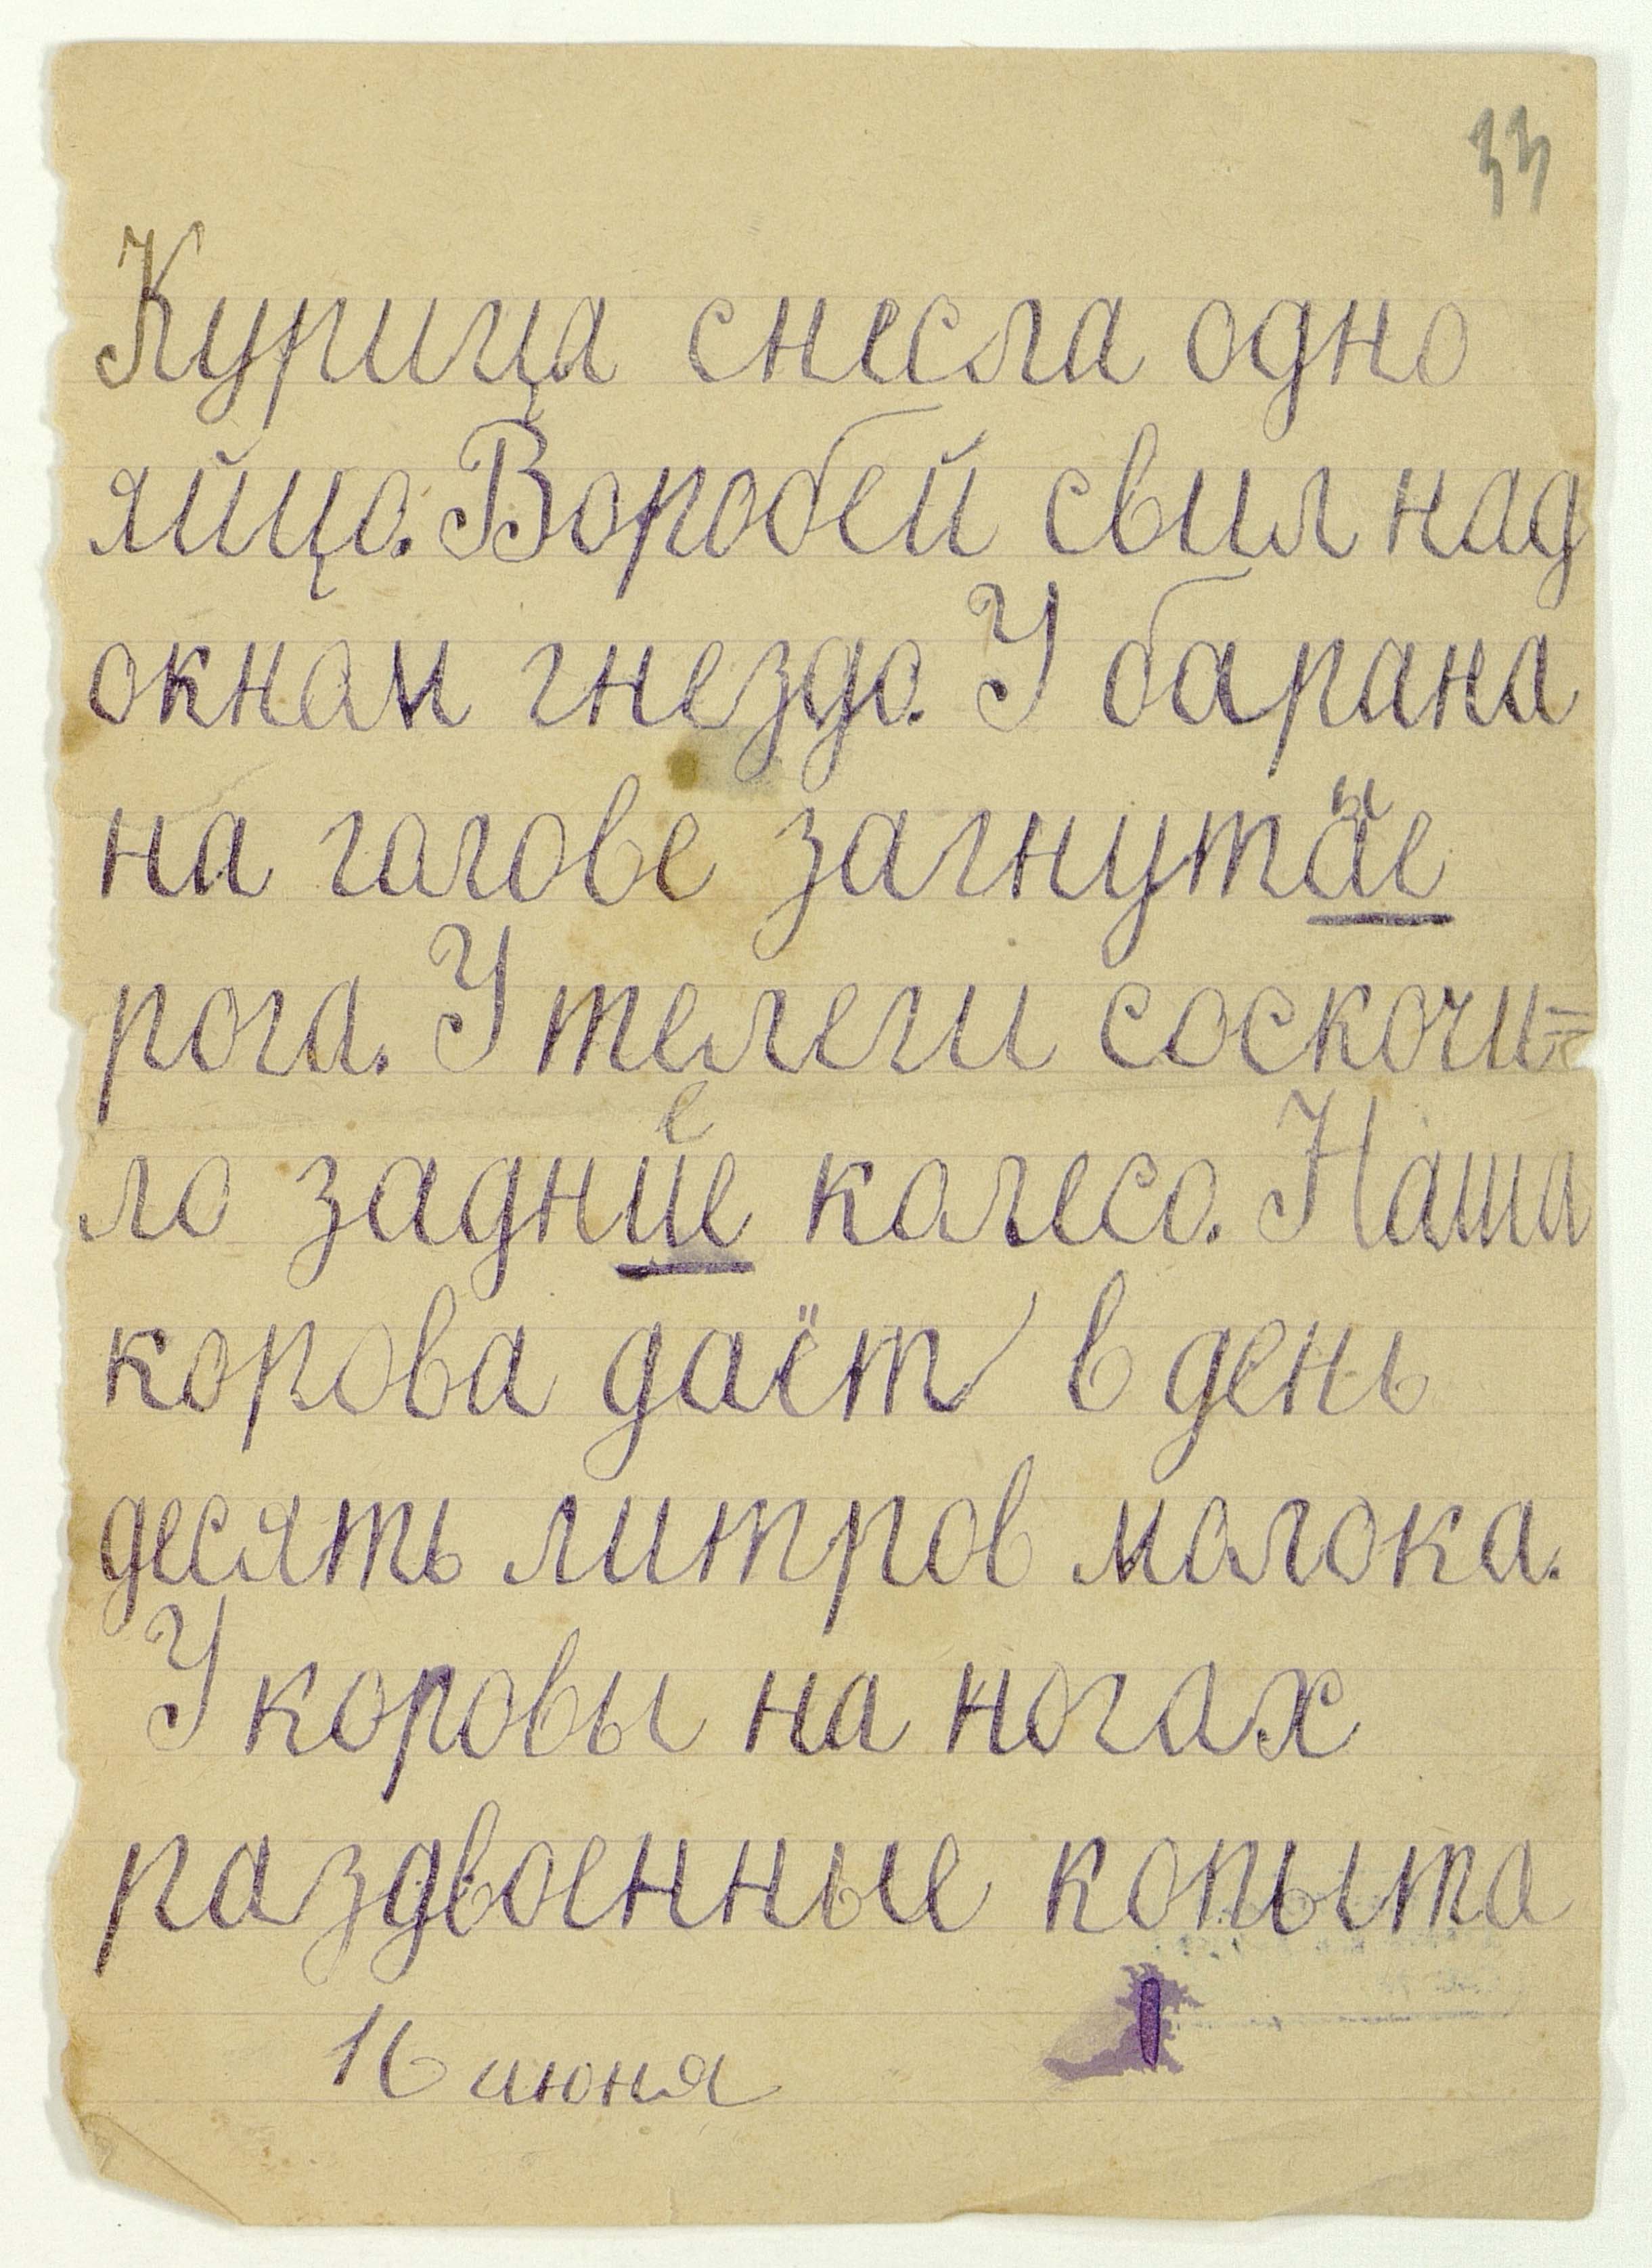 33
Курица снесла одно
яйцо. Воробей свил над
окном гнездо. У барана
на голове загнутые
рога. У телеги соскочи=
ло заднее колесо. Наша
корова даёт в день
десять литров молока.
У коровы на ногах
раздвоенные копыта
16 июня